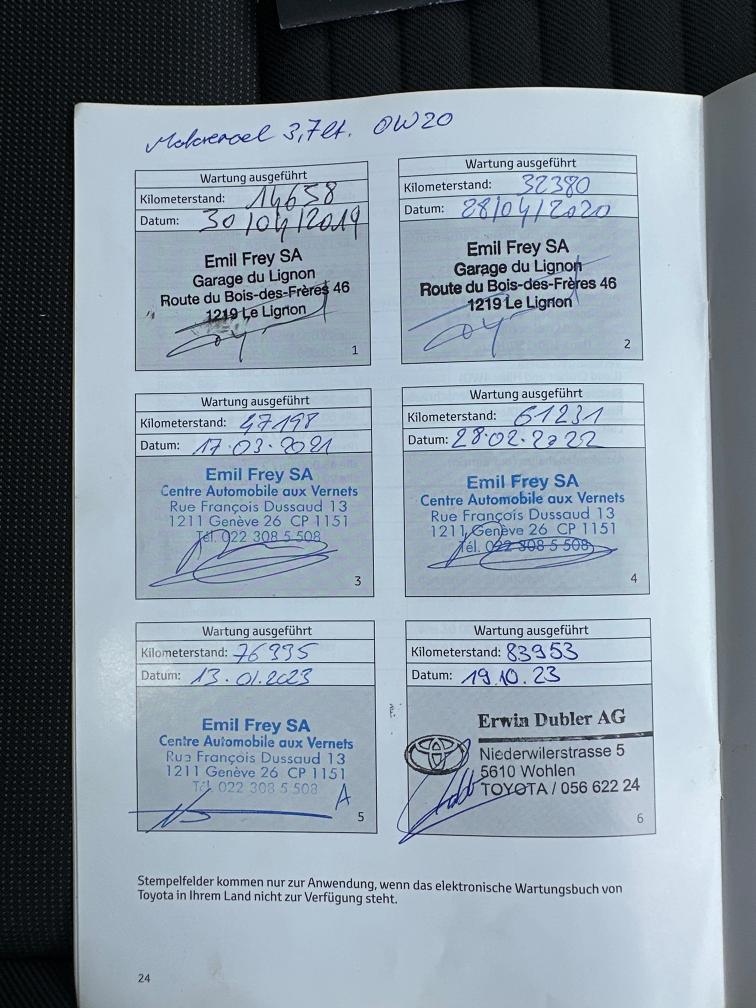 Motorenoel 3,7 lt. 0W20
Wartung ausgeführt
Kilometerstand: 14658
Datum: 30/04/2019
Emil Frey SA
Garage du Lignon
Route du Bois-des-Frères 46
1219 Le Lignon
1
Wartung ausgeführt
Kilometerstand: 32380
Datum: 28/04/2020
Emil Frey SA
Garage du Lignon
Route du Bois-des-Frères 46
1219 Le Lignon
2
Wartung ausgeführt
Kilometerstand: 47198
Datum: 17.03.2021
Emil Frey SA
Centre Automobile aux Vernets
Rue François Dussaud 13
1211 Genève 26 CP 1151
Tél. 022 308 5 508
3
Wartung ausgeführt
Kilometerstand: 61231
Datum: 28.02.2022
Emil Frey SA
Centre Automobile aux Vernets
Rue François Dussaud 13
1211 Genève 26 CP 1151
Tél. 022 308 5 508
4
Wartung ausgeführt
Kilometerstand: 76995
Datum: 13.01.2023
Emil Frey SA
Centre Automobile aux Vernets
Rue François Dussaud 13
1211 Genève 26 CP 1151
Tél. 022 308 5 508
A
5
Wartung ausgeführt
Kilometerstand: 83953
Datum: 19.10.23
Erwin Dubler AG
Niederwilerstrasse 5
5610 Wohlen
TOYOTA / 056 622 24
6
Stempelfelder kommen nur zur Anwendung, wenn das elektronische Wartungsbuch von
Toyota in Ihrem Land nicht zur Verfügung steht.
24